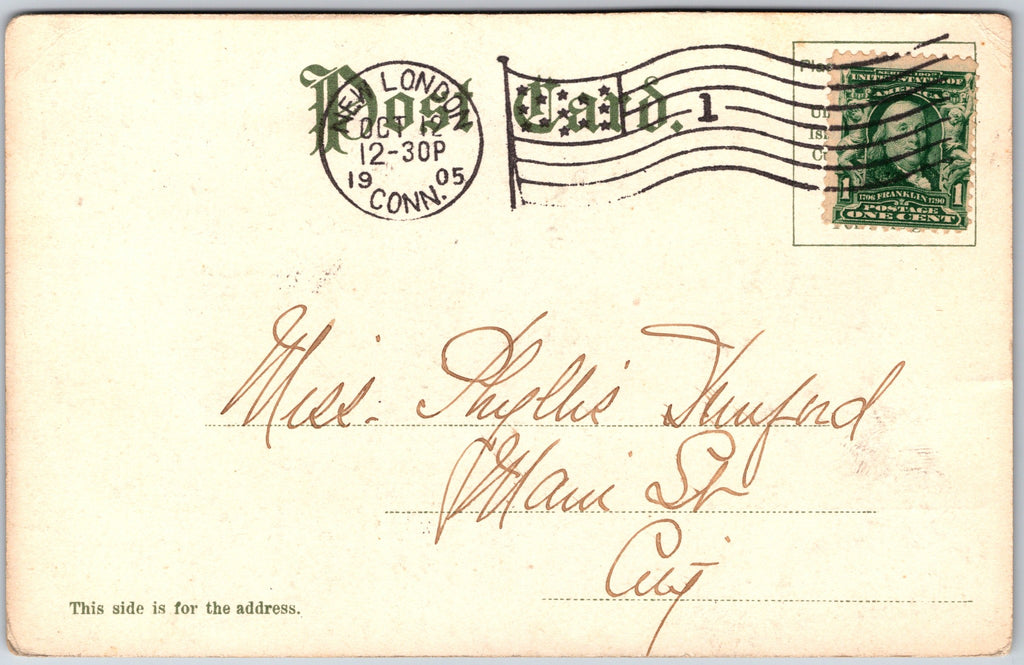 Post Card.
NEW LONDON
OCT 12
12-30P
1905
CONN.
1
SERIES 1902
UNITED STATES OF
AMERICA
1706 FRANKLIN 1790
1 POSTAGE 1
ONE CENT
Miss. Phyllis
Main St
City
This side is for the address.